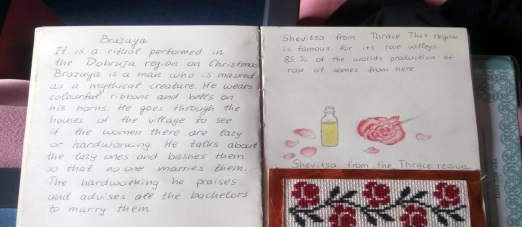 Brazaya
It is a ritual performed in
the Dobruja region on Christmas
Brazaya is a man who is masked
as a mythical creature. He wears
colourful ribbons and bells on
his horns. He goes through the
houses of the village to see
if the women there are lazy
or hardworking. He talks about
the lazy ones and bashes them
so that no one marries them.
The hardworking he praises
and advises all the bachelors
to marry them
Shevitsa from Thrace That region
is famous for its rose valleys.
85 % of the worlds production of
rose oil comes from here.
Shevitsa from the Thrace region